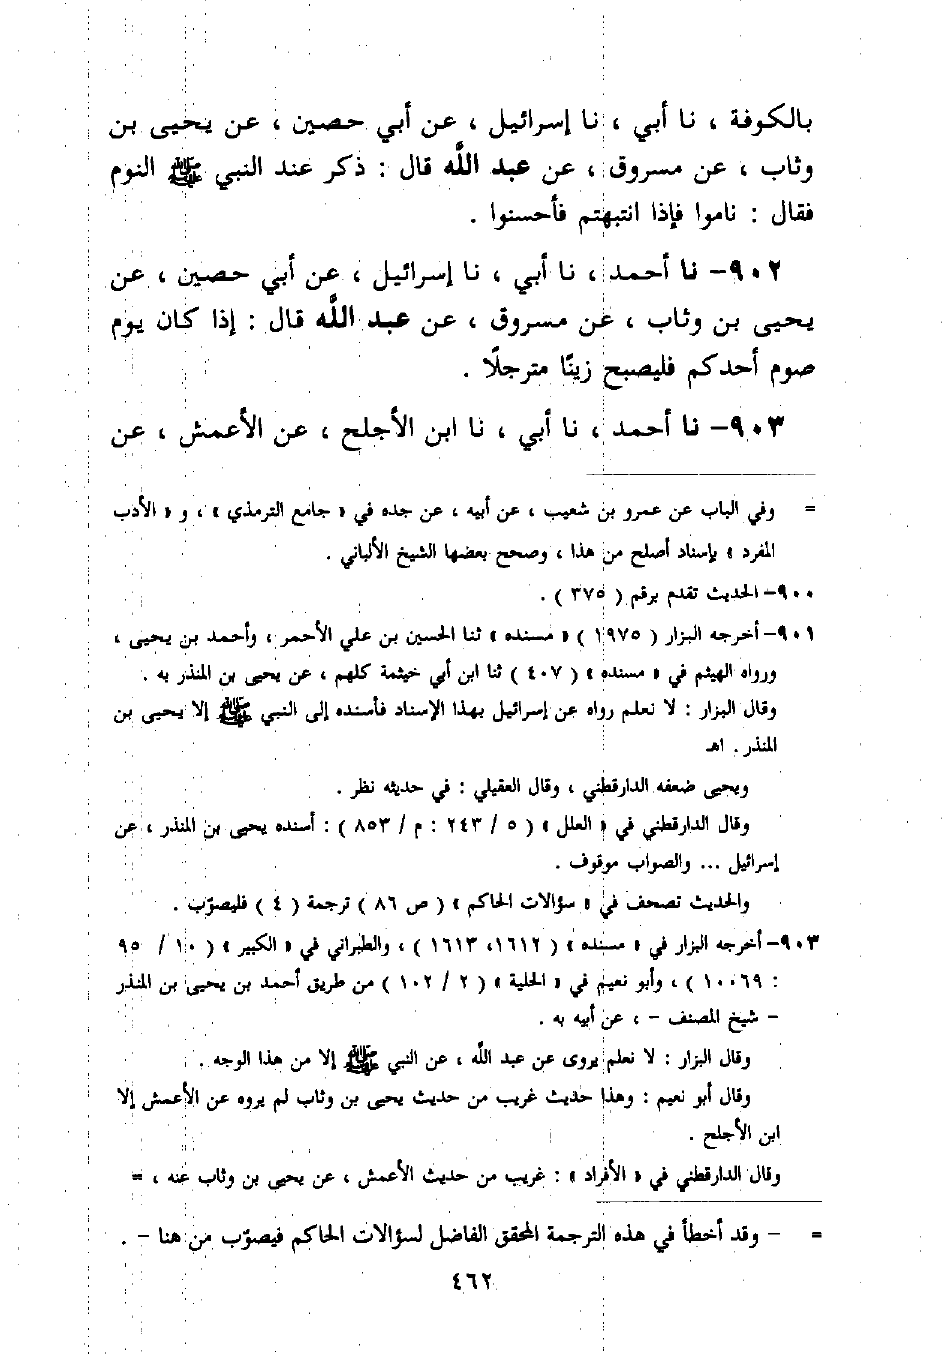 بالكوفة ، نا أبي ، نا إسرائيل ، عن أبي حصين ، عن يحيى بن
وثاب ، عن مسروق ، عن عبد اللَّه قال : ذكر عند النبي ﷺ النوم
فقال : ناموا فإذا انتبهتم فأحسنوا .
٩٠٢- نا أحمد ، نا أبي ، نا إسرائيل ، عن أبي حصين ، عن
يحيى بن وثاب ، عن مسروق ، عن عبد اللَّه قال : إذا كان يوم
صوم أحدكم فليصبح زينًا مترجلًا .
٩٠٣- نا أحمد ، نا أبي ، نا ابن الأجلح ، عن الأعمش ، عن
= وفي الباب عن عمرو بن شعيب ، عن أبيه ، عن جده في « جامع الترمذي » ، و « الأدب
المفرد » بإسناد أصلح من هذا ، وصحح بعضها الشيخ الألباني .
٩٠٠- الحديث تقدم برقم ( ٣٧٥ ) .
٩٠١- أخرجه البزار ( ١٩٧٥ ) « مسنده » ثنا الحسين بن علي الأحمر ، وأحمد بن يحيى ،
ورواه الهيثم في « مسنده » ( ٤٠٧ ) ثنا ابن أبي خيثمة كلهم ، عن يحيى بن المنذر به .
وقال البزار : لا نعلم رواه عن إسرائيل بهذا الإسناد فأسنده إلى النبي ﷺ إلا يحيى بن
المنذر . اهـ
ويحيى ضعفه الدارقطني ، وقال العقيلي : في حديثه نظر .
وقال الدارقطني في « العلل » ( ٥ / ٢٤٣ : م / ٨٥٣ ) : أسنده يحيى بن المنذر ، عن
إسرائيل ... والصواب موقوف .
والحديث تصحف في « سؤالات الحاكم » ( ص ٨٦ ) ترجمة ( ٤ ) فليصوّب .
٩٠٣- أخرجه البزار في « مسنده » ( ١٦١٢، ١٦١٣ ) ، والطبراني في « الكبير » ( ١٠ / ٩٥
: ١٠٠٦٩ ) ، وأبو نعيم في « الحلية » ( ٢ / ١٠٢ ) من طريق أحمد بن يحيى بن المنذر
- شيخ المصنف - ، عن أبيه به .
وقال البزار : لا نعلم يروى عن عبد اللَّه ، عن النبي ﷺ إلا من هذا الوجه .
وقال أبو نعيم : وهذا حديث غريب من حديث يحيى بن وثاب لم يروه عن الأعمش إلا
ابن الأجلح .
وقال الدارقطني في « الأفراد » : غريب من حديث الأعمش ، عن يحيى بن وثاب عنه ، =
= - وقد أخطأ في هذه الترجمة المحقق الفاضل لسؤالات الحاكم فيصوّب من هنا - .
٤٦٢